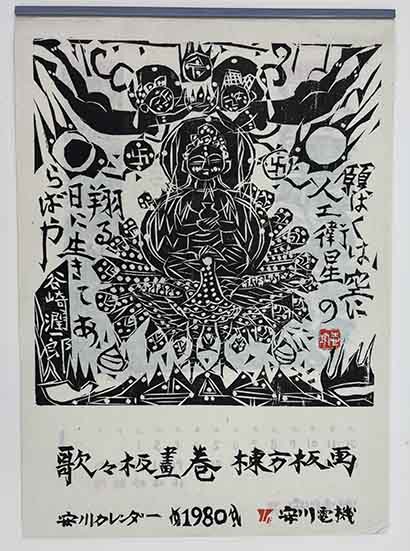 願はくは空に
人工衛星の
翔る
日に生きてあ
らばや
谷崎潤一郎
歌々板畫巻 棟方板画
安川カレンダー 1980 安川電機